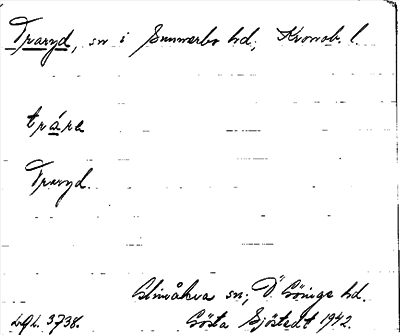 Traryd, sn i Sunnerbo hd; Kronob. l.
tráre
Traryd.
Glimåkra sn; Ö. Göinge hd.
Gösta Sjöstedt 1942.
3738.